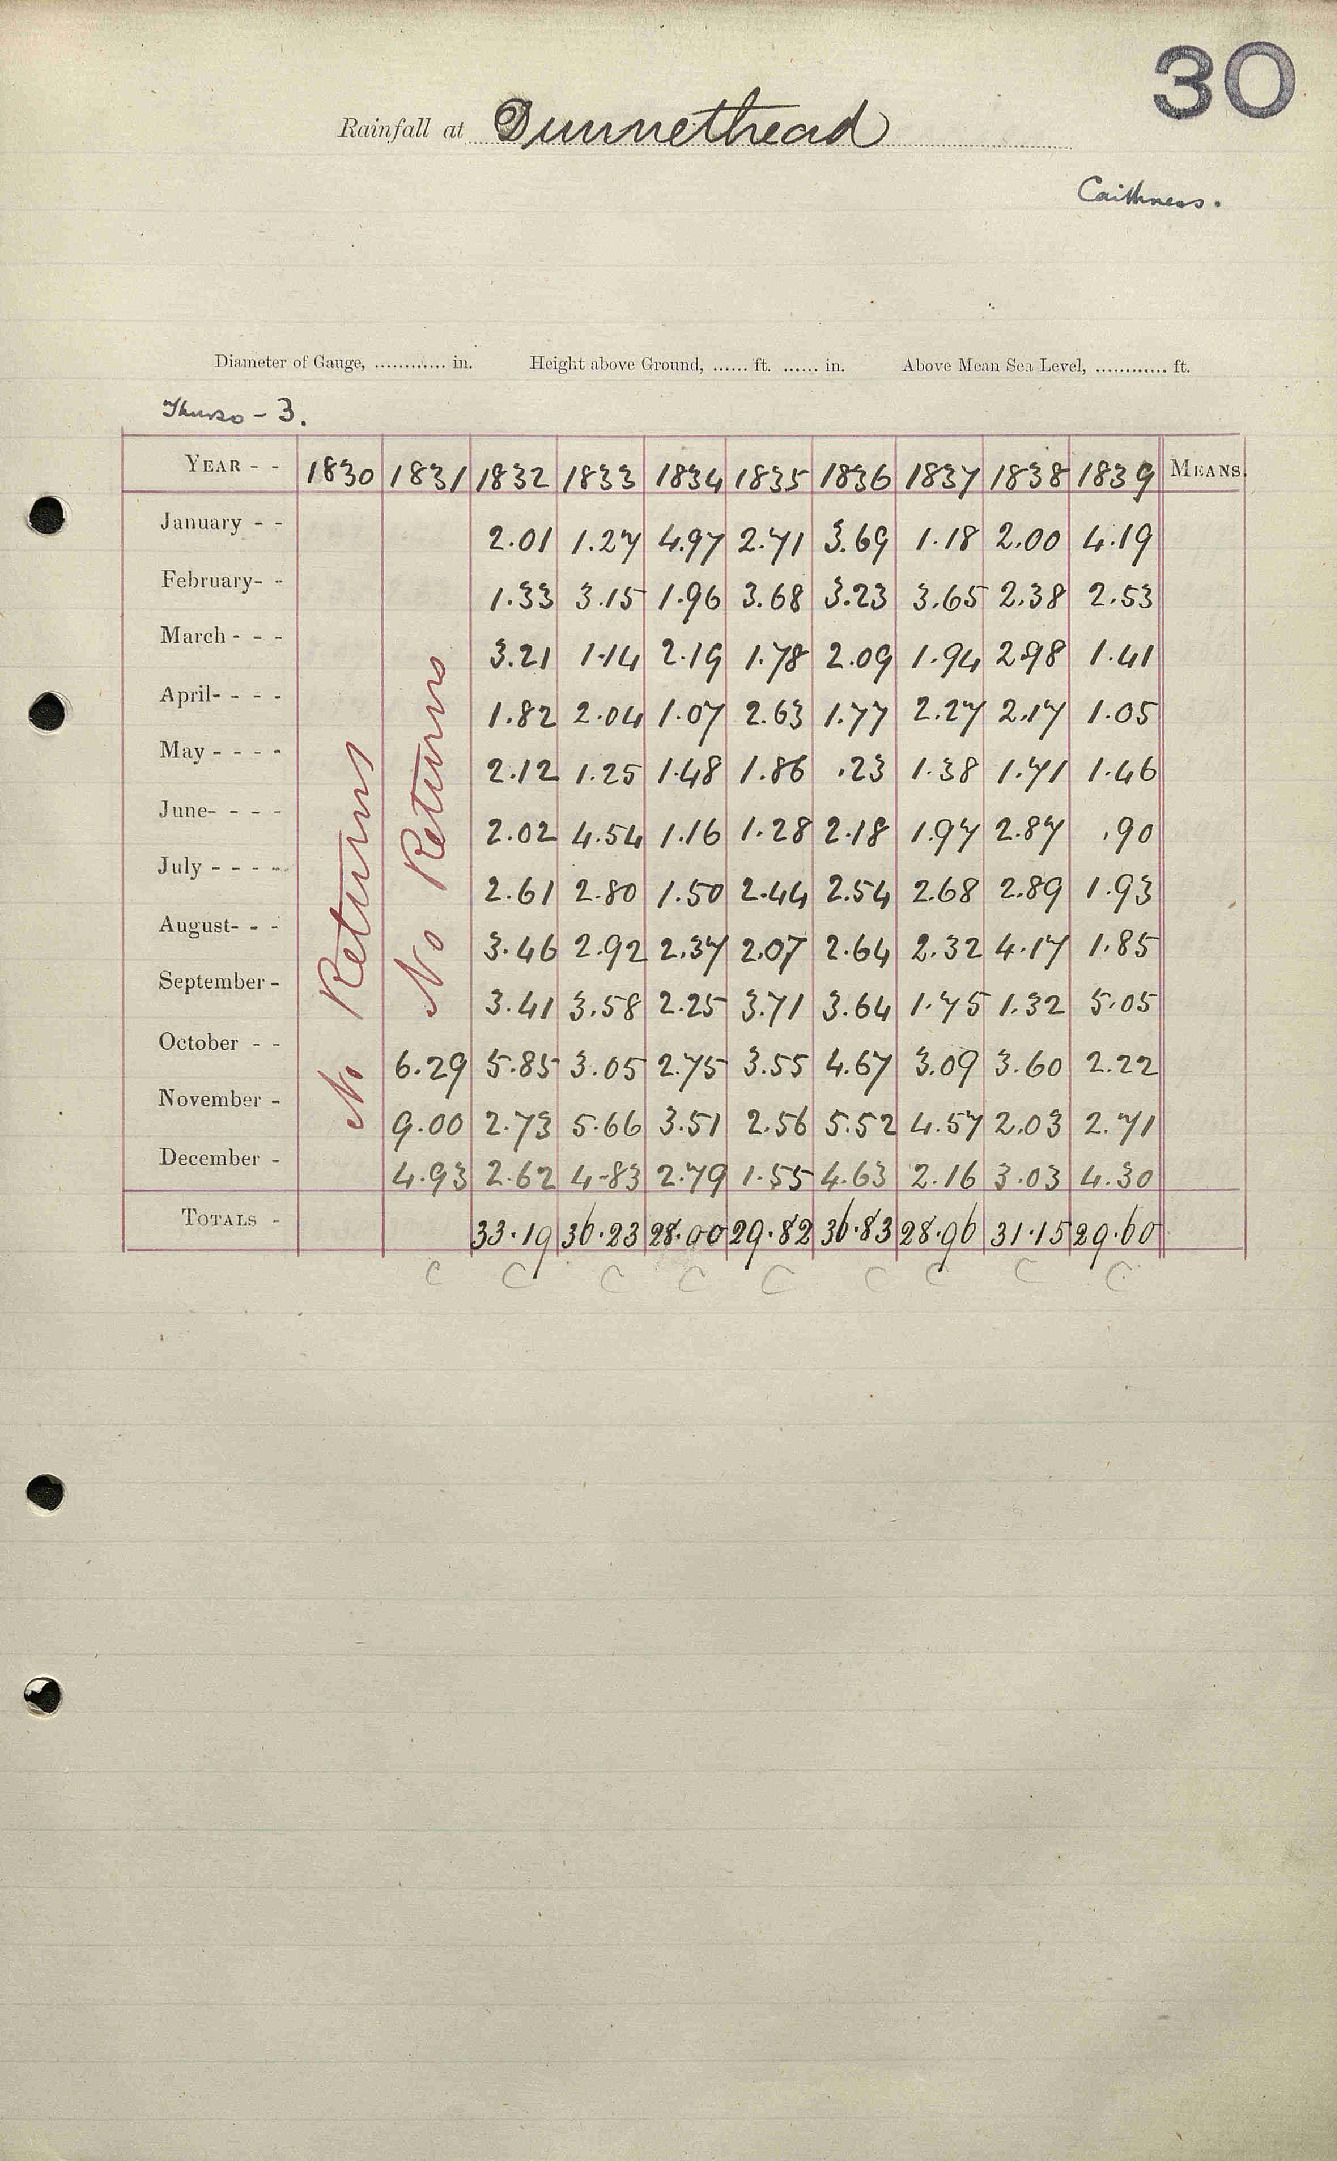 30
Rainfall at Dunnethead
Caithness.
Diameter of Gauge, ............ in. Height above Ground, ...... ft. ...... in. Above Mean Sea Level, ............ ft.
Thurso - 3.
YEAR - - 1830 1831 1832 1833 1834 1835 1836 1837 1838 1839 MEANS.
January - - 2.01 1.27 4.97 2.71 3.69 1.18 2.00 4.19
February- - 1.33 3.15 1.96 3.68 3.23 3.65 2.38 2.53
March - - - 3.21 1.14 2.19 1.78 2.09 1.94 2.98 1.41
April- - - - 1.82 2.04 1.07 2.63 1.77 2.27 2.17 1.05
May - - - - 2.12 1.25 1.48 1.86 .23 1.38 1.71 1.46
June- - - - 2.02 4.54 1.16 1.28 2.18 1.97 2.87 .90
July - - - - 2.61 2.80 1.50 2.44 2.54 2.68 2.89 1.93
August- - - 3.46 2.92 2.37 2.07 2.64 2.32 4.17 1.85
September - 3.41 3.58 2.25 3.71 3.64 1.75 1.32 5.05
October - - 6.29 5.85 3.05 2.75 3.55 4.67 3.09 3.60 2.22
November - 9.00 2.73 5.66 3.51 2.56 5.52 4.57 2.03 2.71
December - 4.93 2.62 4.83 2.79 1.55 4.63 2.16 3.03 4.30
TOTALS - 33.19 36.23 28.00 29.82 36.83 28.96 31.15 29.60
No Returns
No Returns
C C C C C C C C C